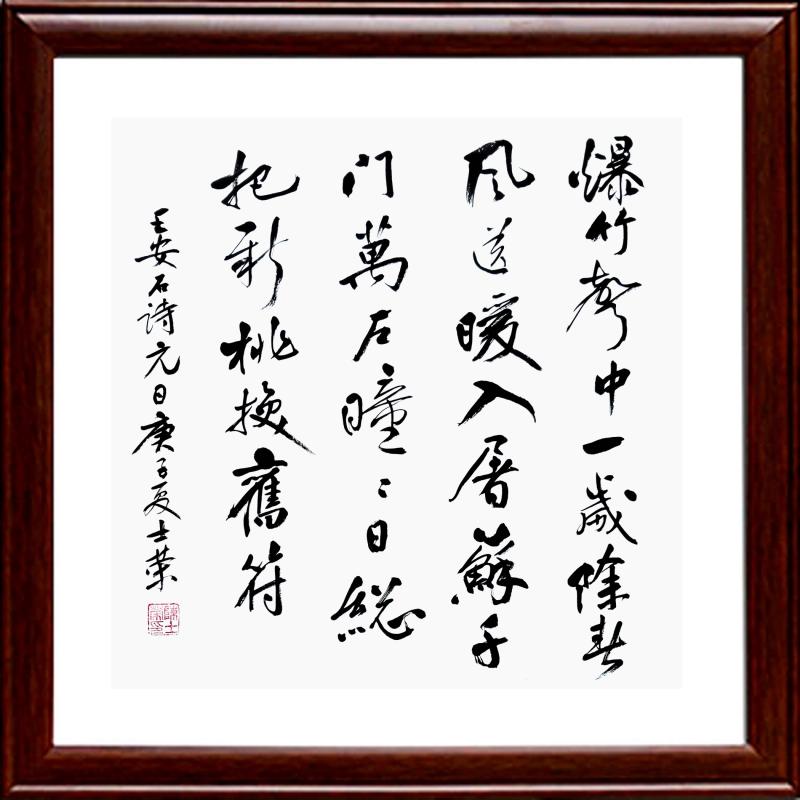 爆竹声中一歲除春
风送暖入屠蘇千
门萬户曈〻日総
把新桃換舊符
王安石詩元日庚子夏士荣